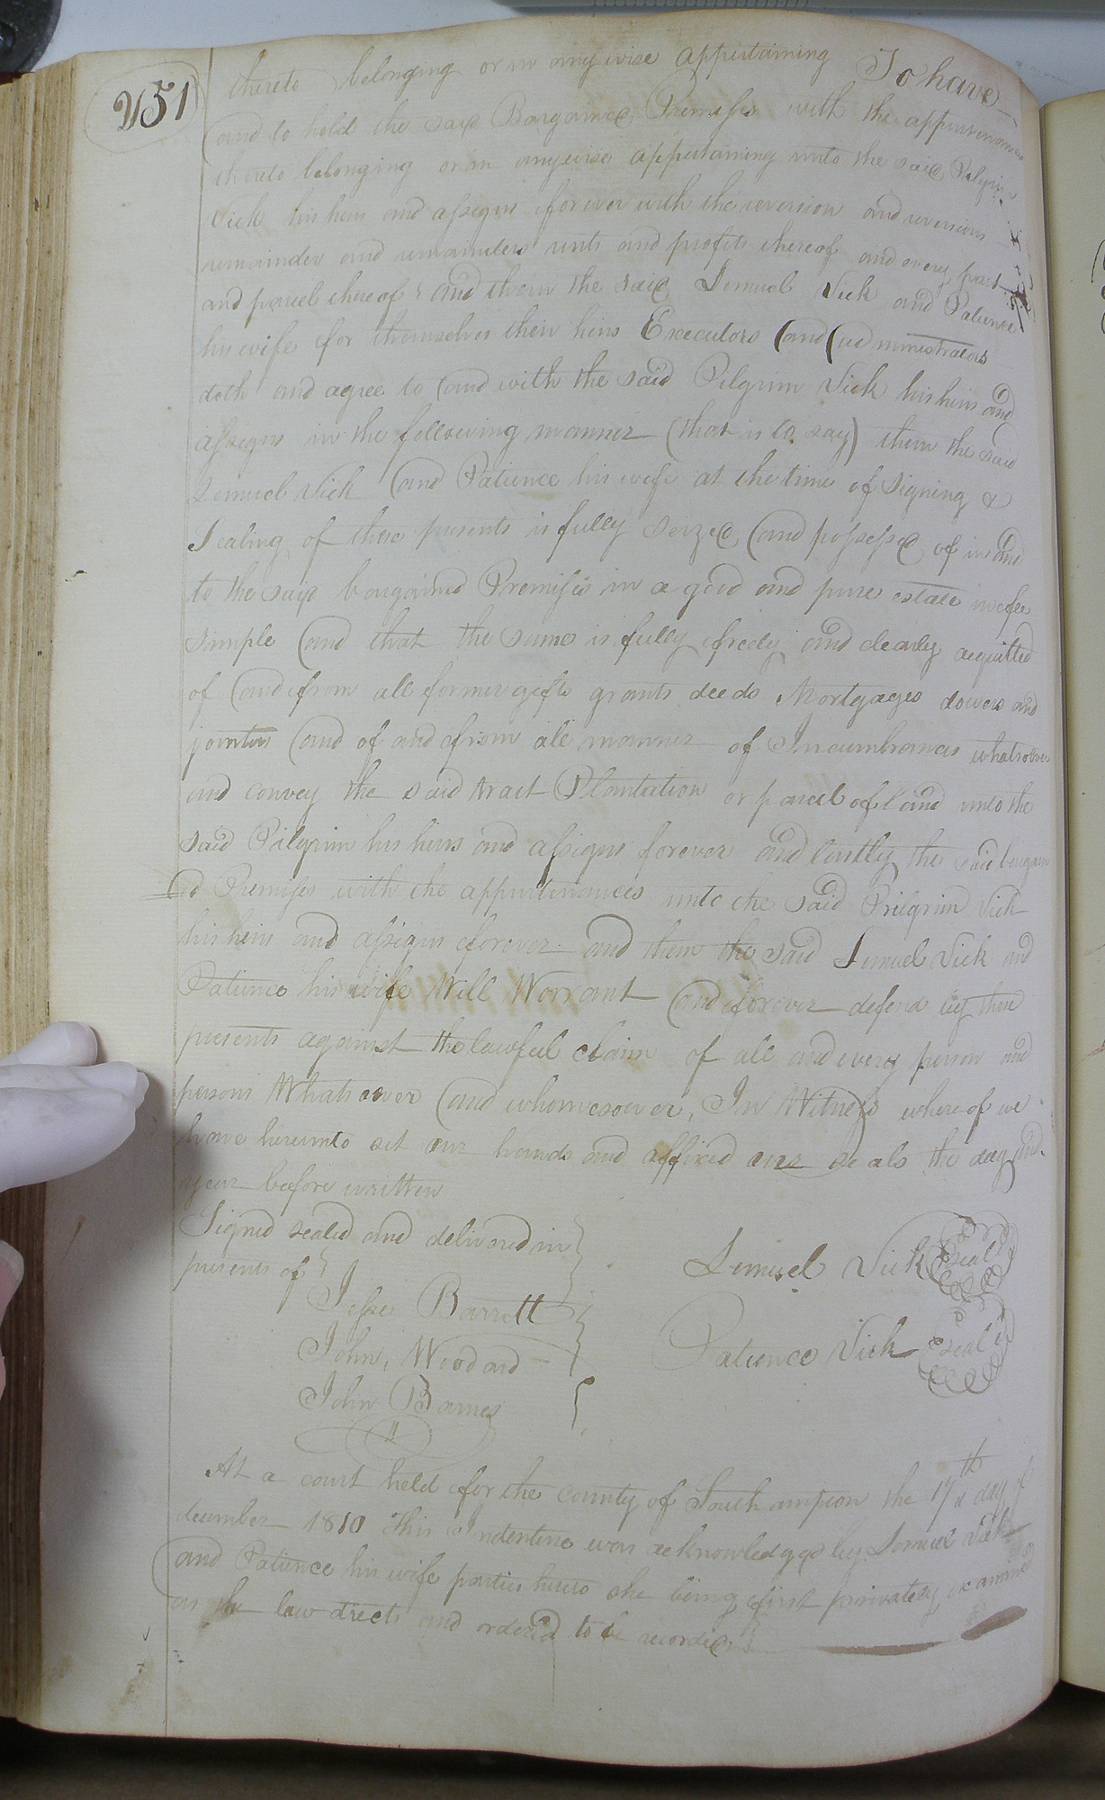 251
thereto belonging or in anywise appertaining To have
and to hold the said Bargained Premises with the appurtenances
thereto belonging or in anywise appertaining unto the said Pilgrim
Vick his heirs and assigns forever with the reversion and reversions
remainder and remainders rents and profits thereof and every part
and parcel thereof and them the said Lemuel Vick and Patience
his wife for themselves their heirs Executors and administrators
doth and agree to and with the said Pilgrim Vick his heirs and
assigns in the following manner (that is to say) them the said
Lemuel Vick and Patience his wife at the time of Signing &
Sealing of these presents is fully seized and possessed of in and
to the said bargained Premises in a good and pure estate in fee
simple and that the same is fully freely and clearly acquitted
of and from all former gifts grants deeds Mortgages dowers and
jointers and of and from all manner of Incumbrances whatsoever
and convey the said tract Plantation or parcel of land unto the
said Pilgrim his heirs and assigns forever and lastly the said bargain
ed Premises with the appurtenances unto the said Pilgrim Vick
his heirs and assigns forever and them the said Lemuel Vick and
Patience his wife Will Warrant and forever defend by these
presents against the lawful claim of all and every person and
persons Whatsoever and whomesoever, In Witness whereof we
have hereunto set our hands and affixed our seals the day and
year before written
Signed sealed and delivered in
presents of
Lemuel Vick Seal
Jesse Barrett
John Woodard
Patience Vick Seal
John Barnes
At a court held for the county of Southampton the 17th day of
december 1810 This Indenture was acknowledged by Lemuel Vick
and Patience his wife parties hereto she being first privately examined
as the law directs and ordered to be recorded